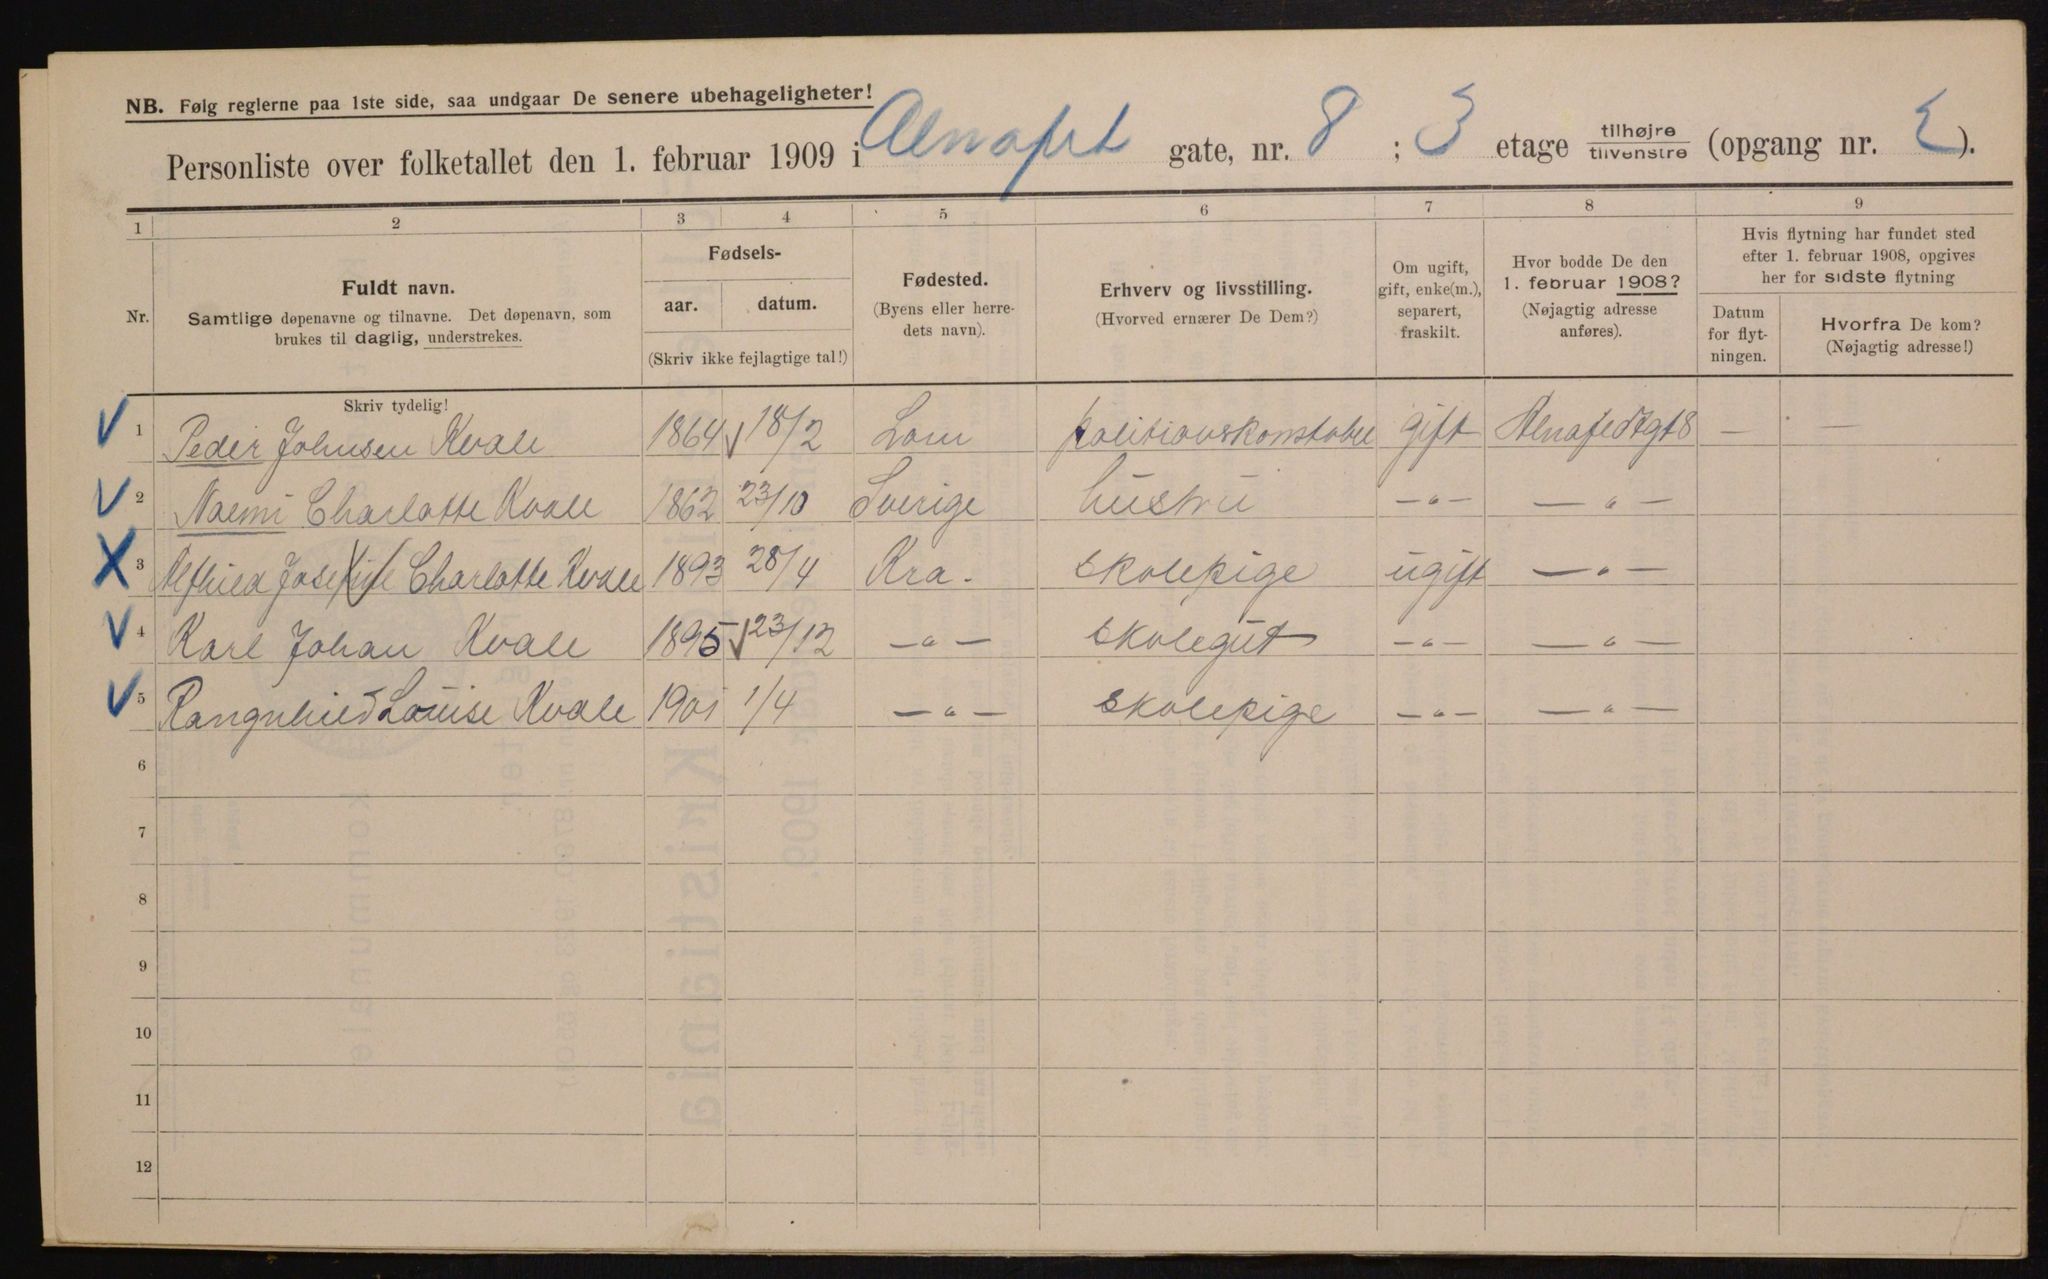 NB. Følg reglerne paa 1ste side, saa undgaar De senere ubehageligheter!
Personliste over folketallet den 1. februar 1909 i Alnafet gate, nr. 8 ; 3 etage tilhøjre / tilvenstre (opgang nr. E ).
1 2 3 4 5 6 7 8 9
Nr.
Fuldt navn.
Samtlige døpenavne og tilnavne. Det døpenavn, som
brukes til daglig, understrekes.
Fødsels-
aar. datum.
(Skriv ikke fejlagtige tal!)
Fødested.
(Byens eller herre-
dets navn).
Erhverv og livsstilling.
(Hvorved ernærer De Dem?)
Om ugift,
gift, enke(m.),
separert,
fraskilt.
Hvor bodde De den
1. februar 1908?
(Nøjagtig adresse
anføres).
Hvis flytning har fundet sted
efter 1. februar 1908, opgives
her for sidste flytning
Datum
for flyt-
ningen.
Hvorfra De kom?
(Nøjagtig adresse!)
Skriv tydelig!
1 Peder Johnsen Kvale 1864 18/2 Lom politiouskonstabel gift Alnafedtgt 8 — —
2 Naemi Charlotte Kvale 1862 23/10 Sverige hustru —"— —"—
3 Charlotte Kvale 1893 28/4 Kra. skolepige ugift —"—
4 Karl Johan Kvale 1895 23/12 —"— skolegut —"— —"—
5 Rangnhied Louise Kvale 1901 1/4 —"— skolepige —"— —"—
6
7
8
9
10
11
12